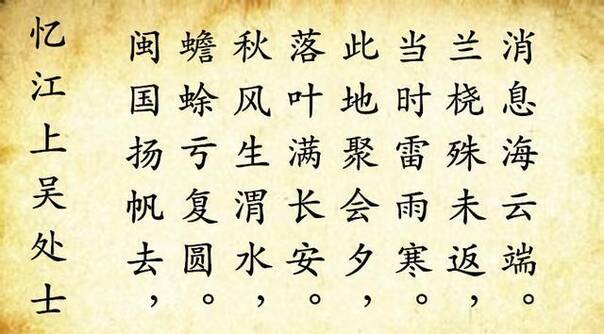 忆江上吴处士
闽国扬帆去，
蟾蜍亏复圆。
秋风生渭水，
落叶满长安。
此地聚会夕，
当时雷雨寒。
兰桡殊未返，
消息海云端。